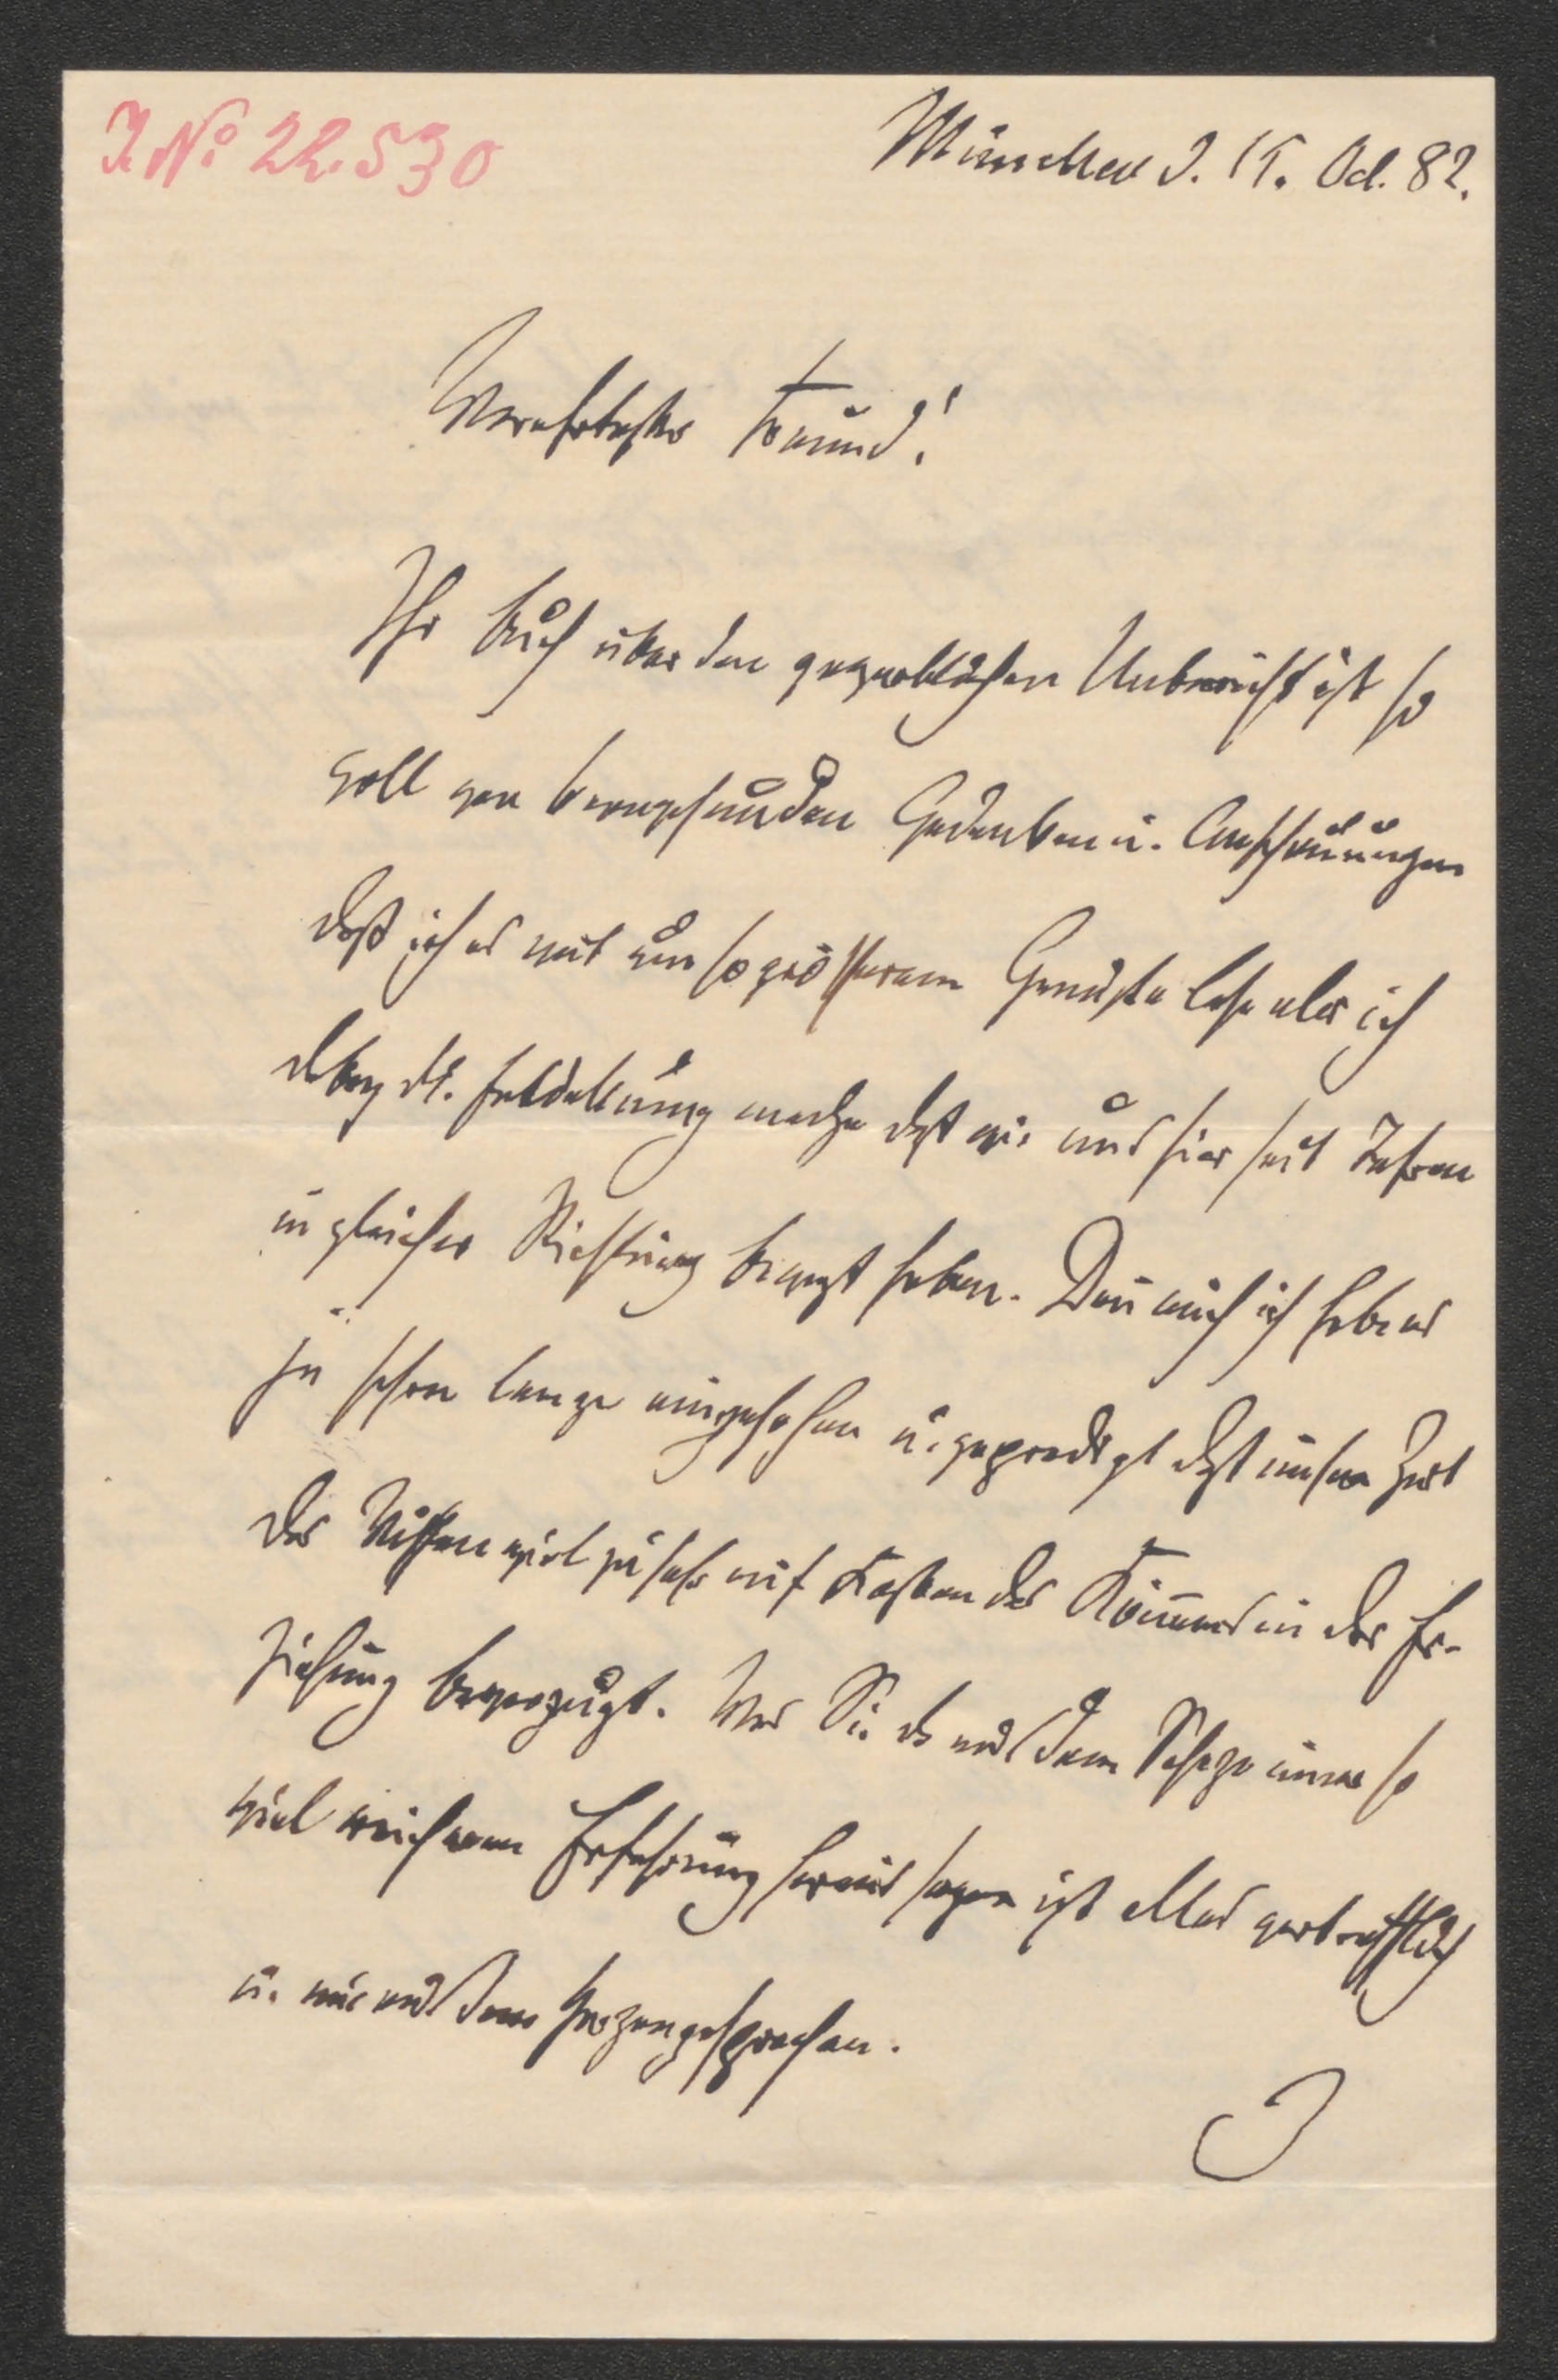 J. No 22.530
München d. 15. Oct. 82.
Verehrtester Freund!
Ihr Buch über den gewerblichen Unterricht ist so
voll von kerngesunden Gedanken u. Anschauungen
daß ich es mit um so größerem Genuße lese als ich
dabey die Entdekung mache daß wir uns hier seit Jahren
in gleicher Richtung bewegt haben. Den̅ auch ich habe es
ja schon lange eingesehen u. gepredigt daß unsere Zeit
das Wissen viel zu sehr auf Kosten des Kön̅ens in der Er-
ziehung bevorzugt. Was Sie da aus dem Schaze einer so
viel reicheren Erfahrung heraus sagen ist alles vortrefflich
u. mir aus dem Herzen gesprochen.